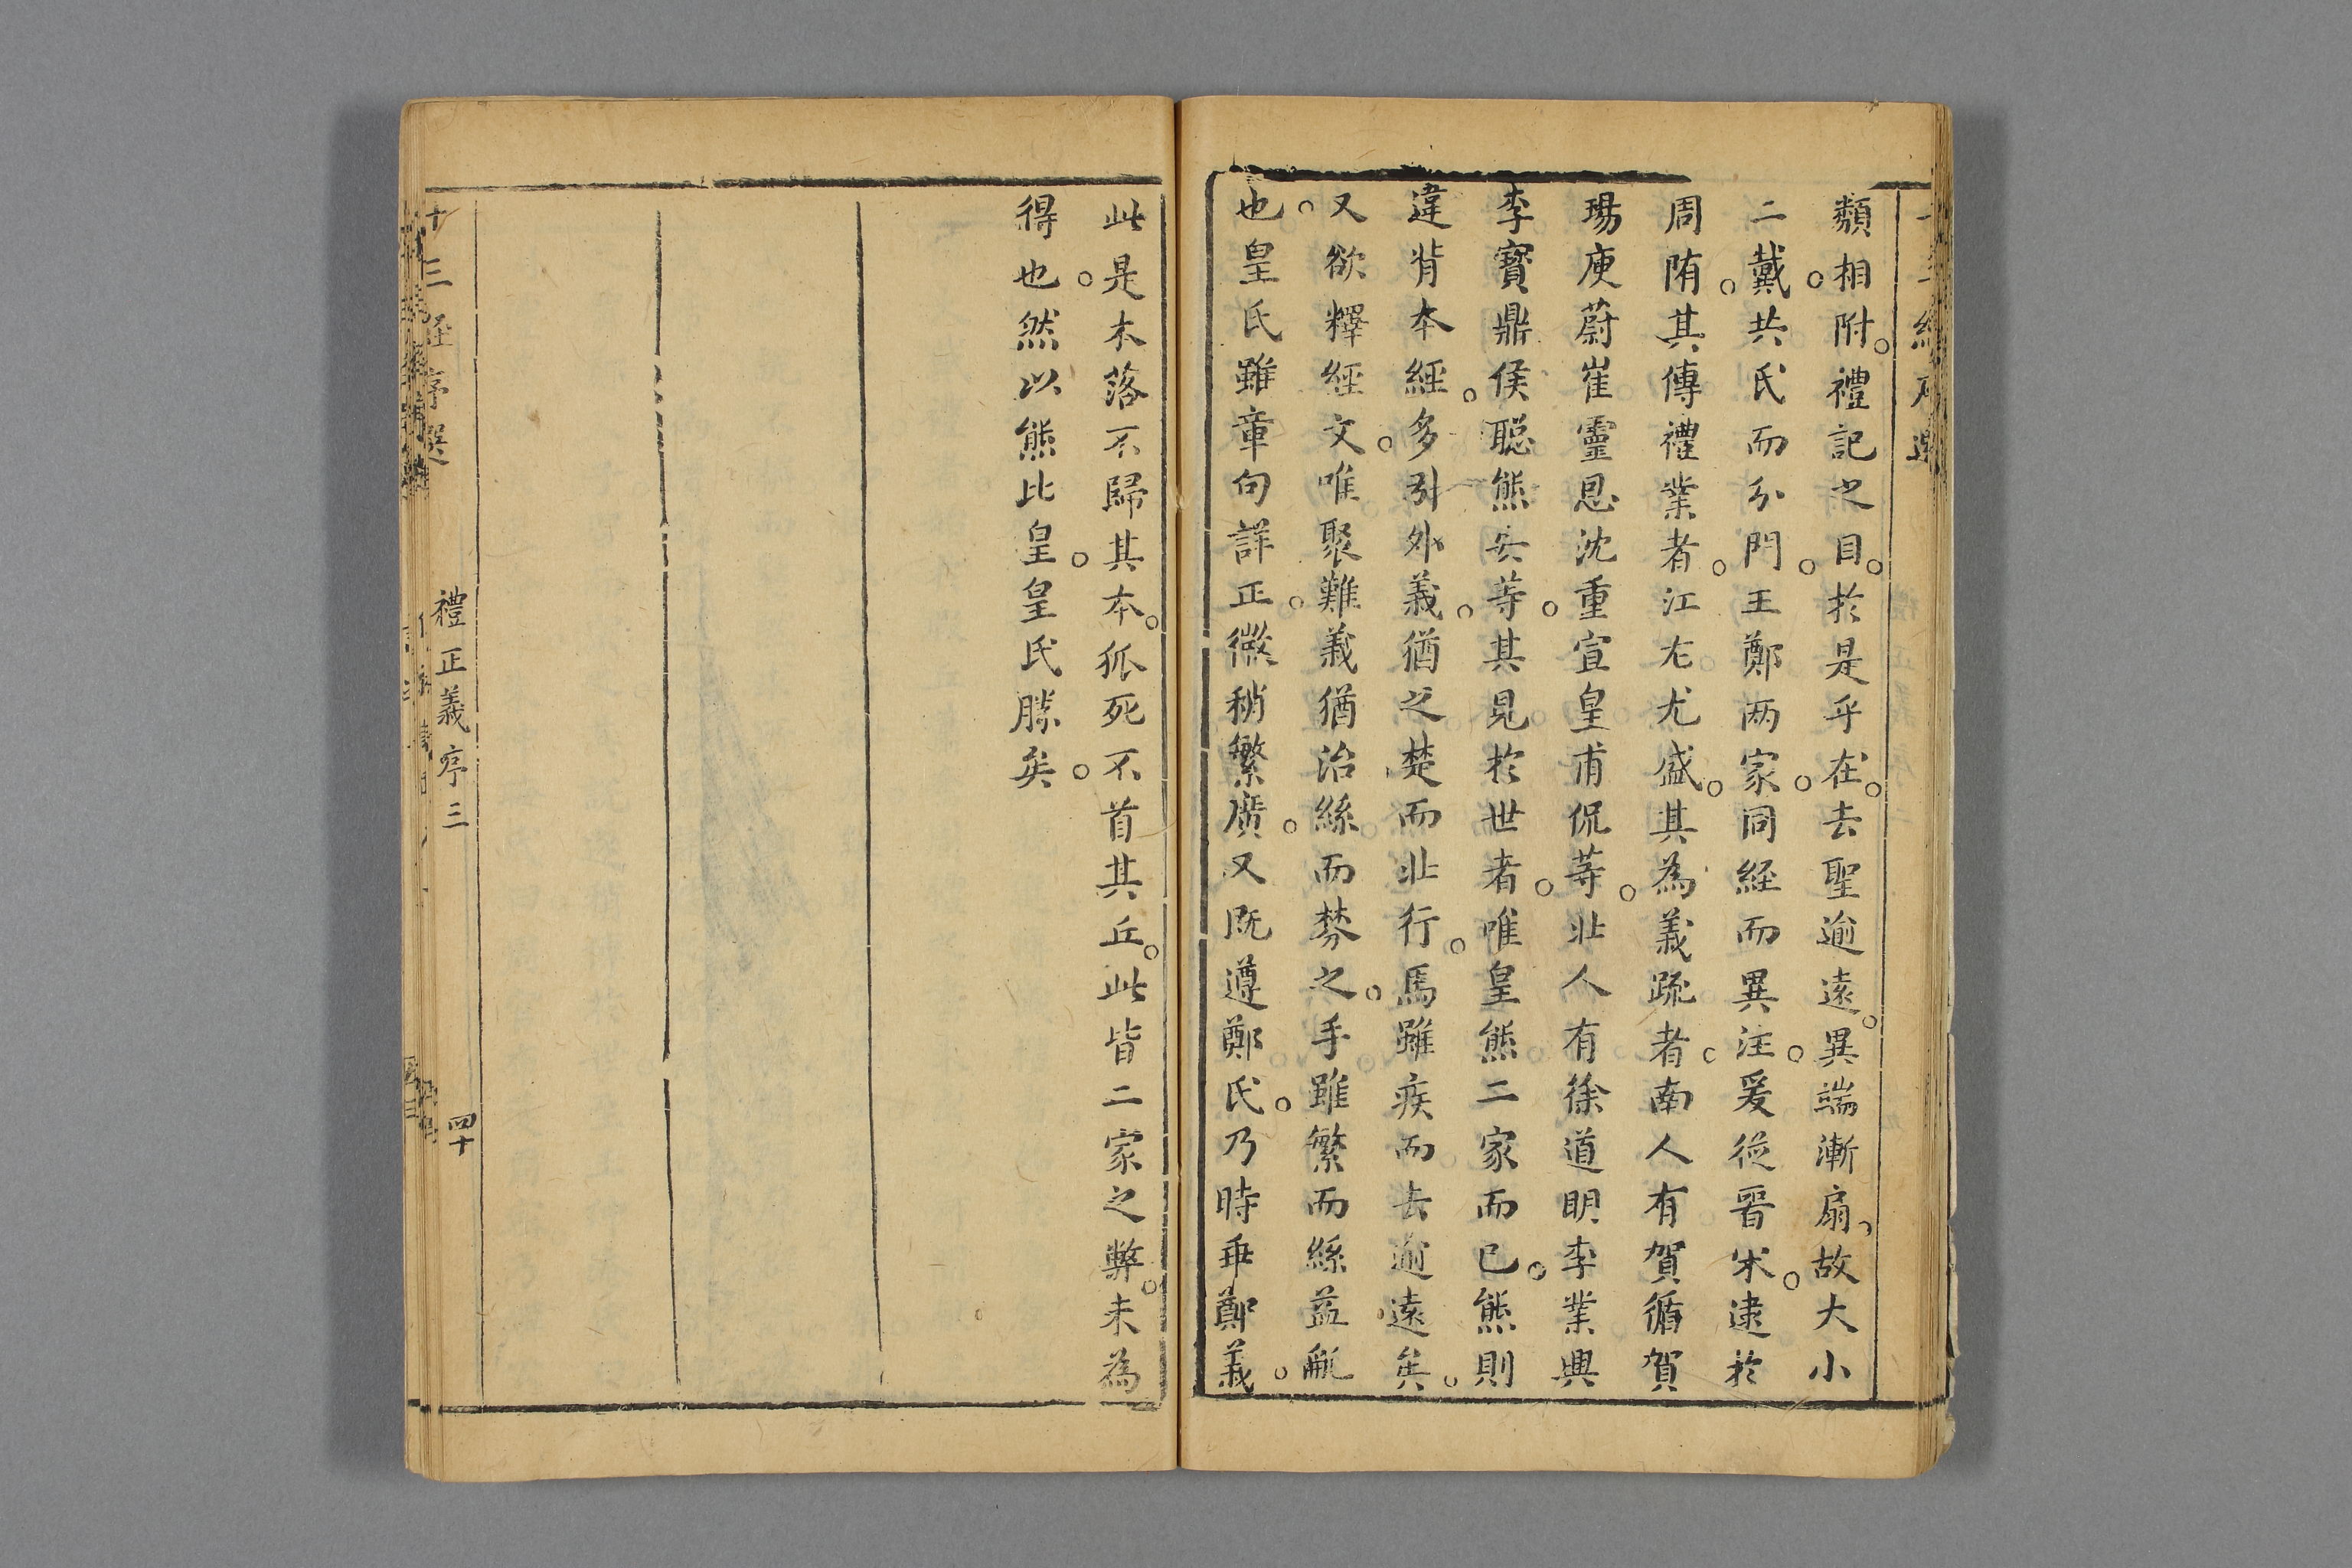 類相附。禮記之目。於是乎在。去聖逾遠。異端漸扇。故大小
二戴。共氏而分門。王鄭兩家。同經而異注。爰從晉宋。逮於
周隋。其傳禮業者。江左尤盛。其為義疏者。南人有賀循賀
瑒庾蔚崔靈恩沈重宣皇甫侃等。北人有徐道明李業興
李寶鼎侯聰熊安等。其見於世者。唯皇熊二家而已。熊則
違背本經。多引外義。猶之楚而北行。馬雖疾而去逾遠矣。
又欲釋經文。唯聚難義猶治絲而棼之。手雖繁而絲益亂
也。皇氏雖章句詳正。微稍繁廣。又既遵鄭氏。乃時乖鄭義。
此是木落不歸其本。狐死不首其丘。此皆二家之弊。未為
得也。然以熊比皇。皇氏勝矣。
十三經序選 禮正義序三 四十